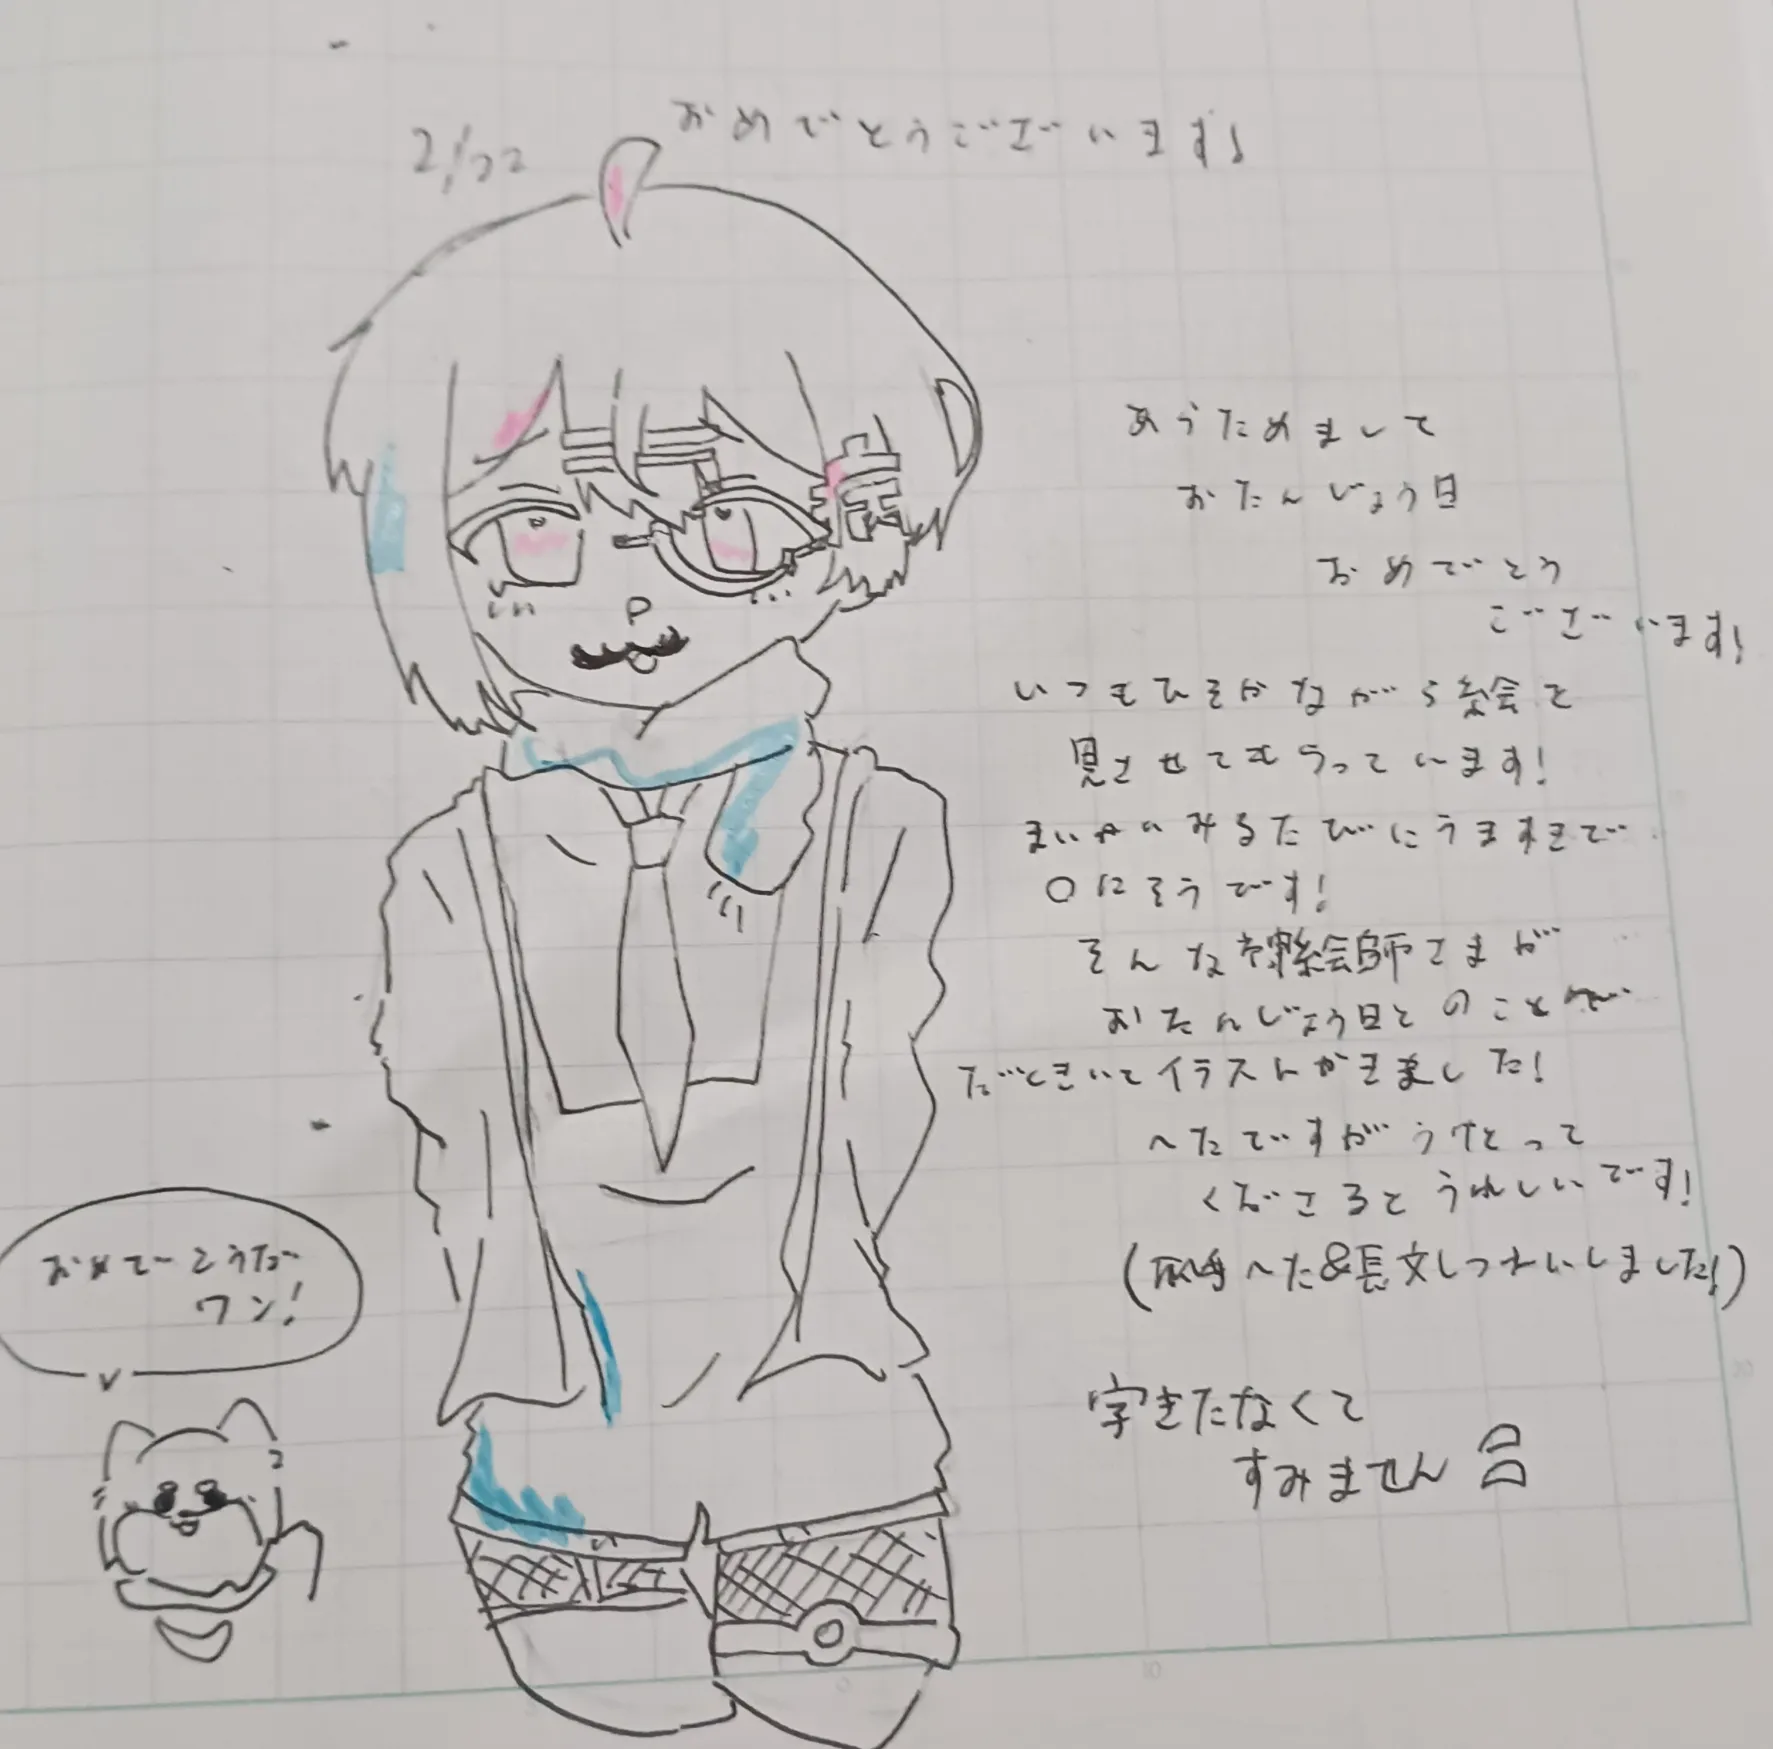 2/22
おめでとうございます!
あらためまして
おたんじょう日
おめでとう
ございます!
いつもひそかながら絵を
見させてもらっています!
まいかいみるたびにうますぎで
〇にそうです!
そんな神絵師さまが
おたんじょう日とのことで
だときいてイラストかきました!
へたですがうけとって
くださるとうれしいです!
へた&長文しつれいしました!)
字きたなくて
すみません
おめでとうだ
ワン!